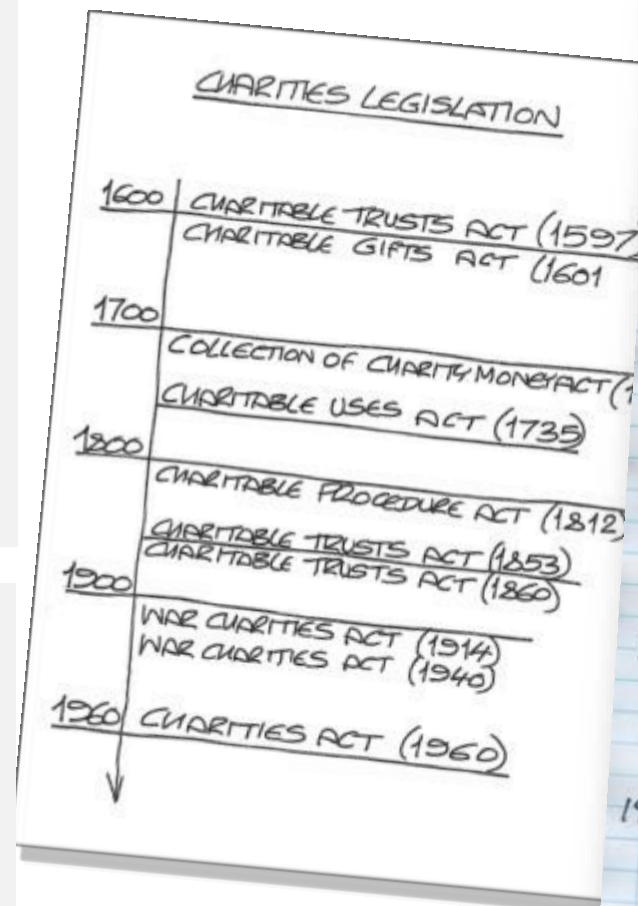 CHARITIES LEGISLATION
1600 CHARITABLE TRUSTS ACT (1597)
CHARITABLE GIFTS ACT (1601
1700
COLLECTION OF CHARITY MONEY ACT (1
CHARITABLE USES ACT (1735)
1800
CHARITABLE PROCEDURE ACT (1812)
CHARITABLE TRUSTS ACT (1853)
CHARITABLE TRUSTS ACT (1860)
1900
WAR CHARITIES ACT (1914)
WAR CHARITIES ACT (1940)
1960 CHARITIES ACT (1960)